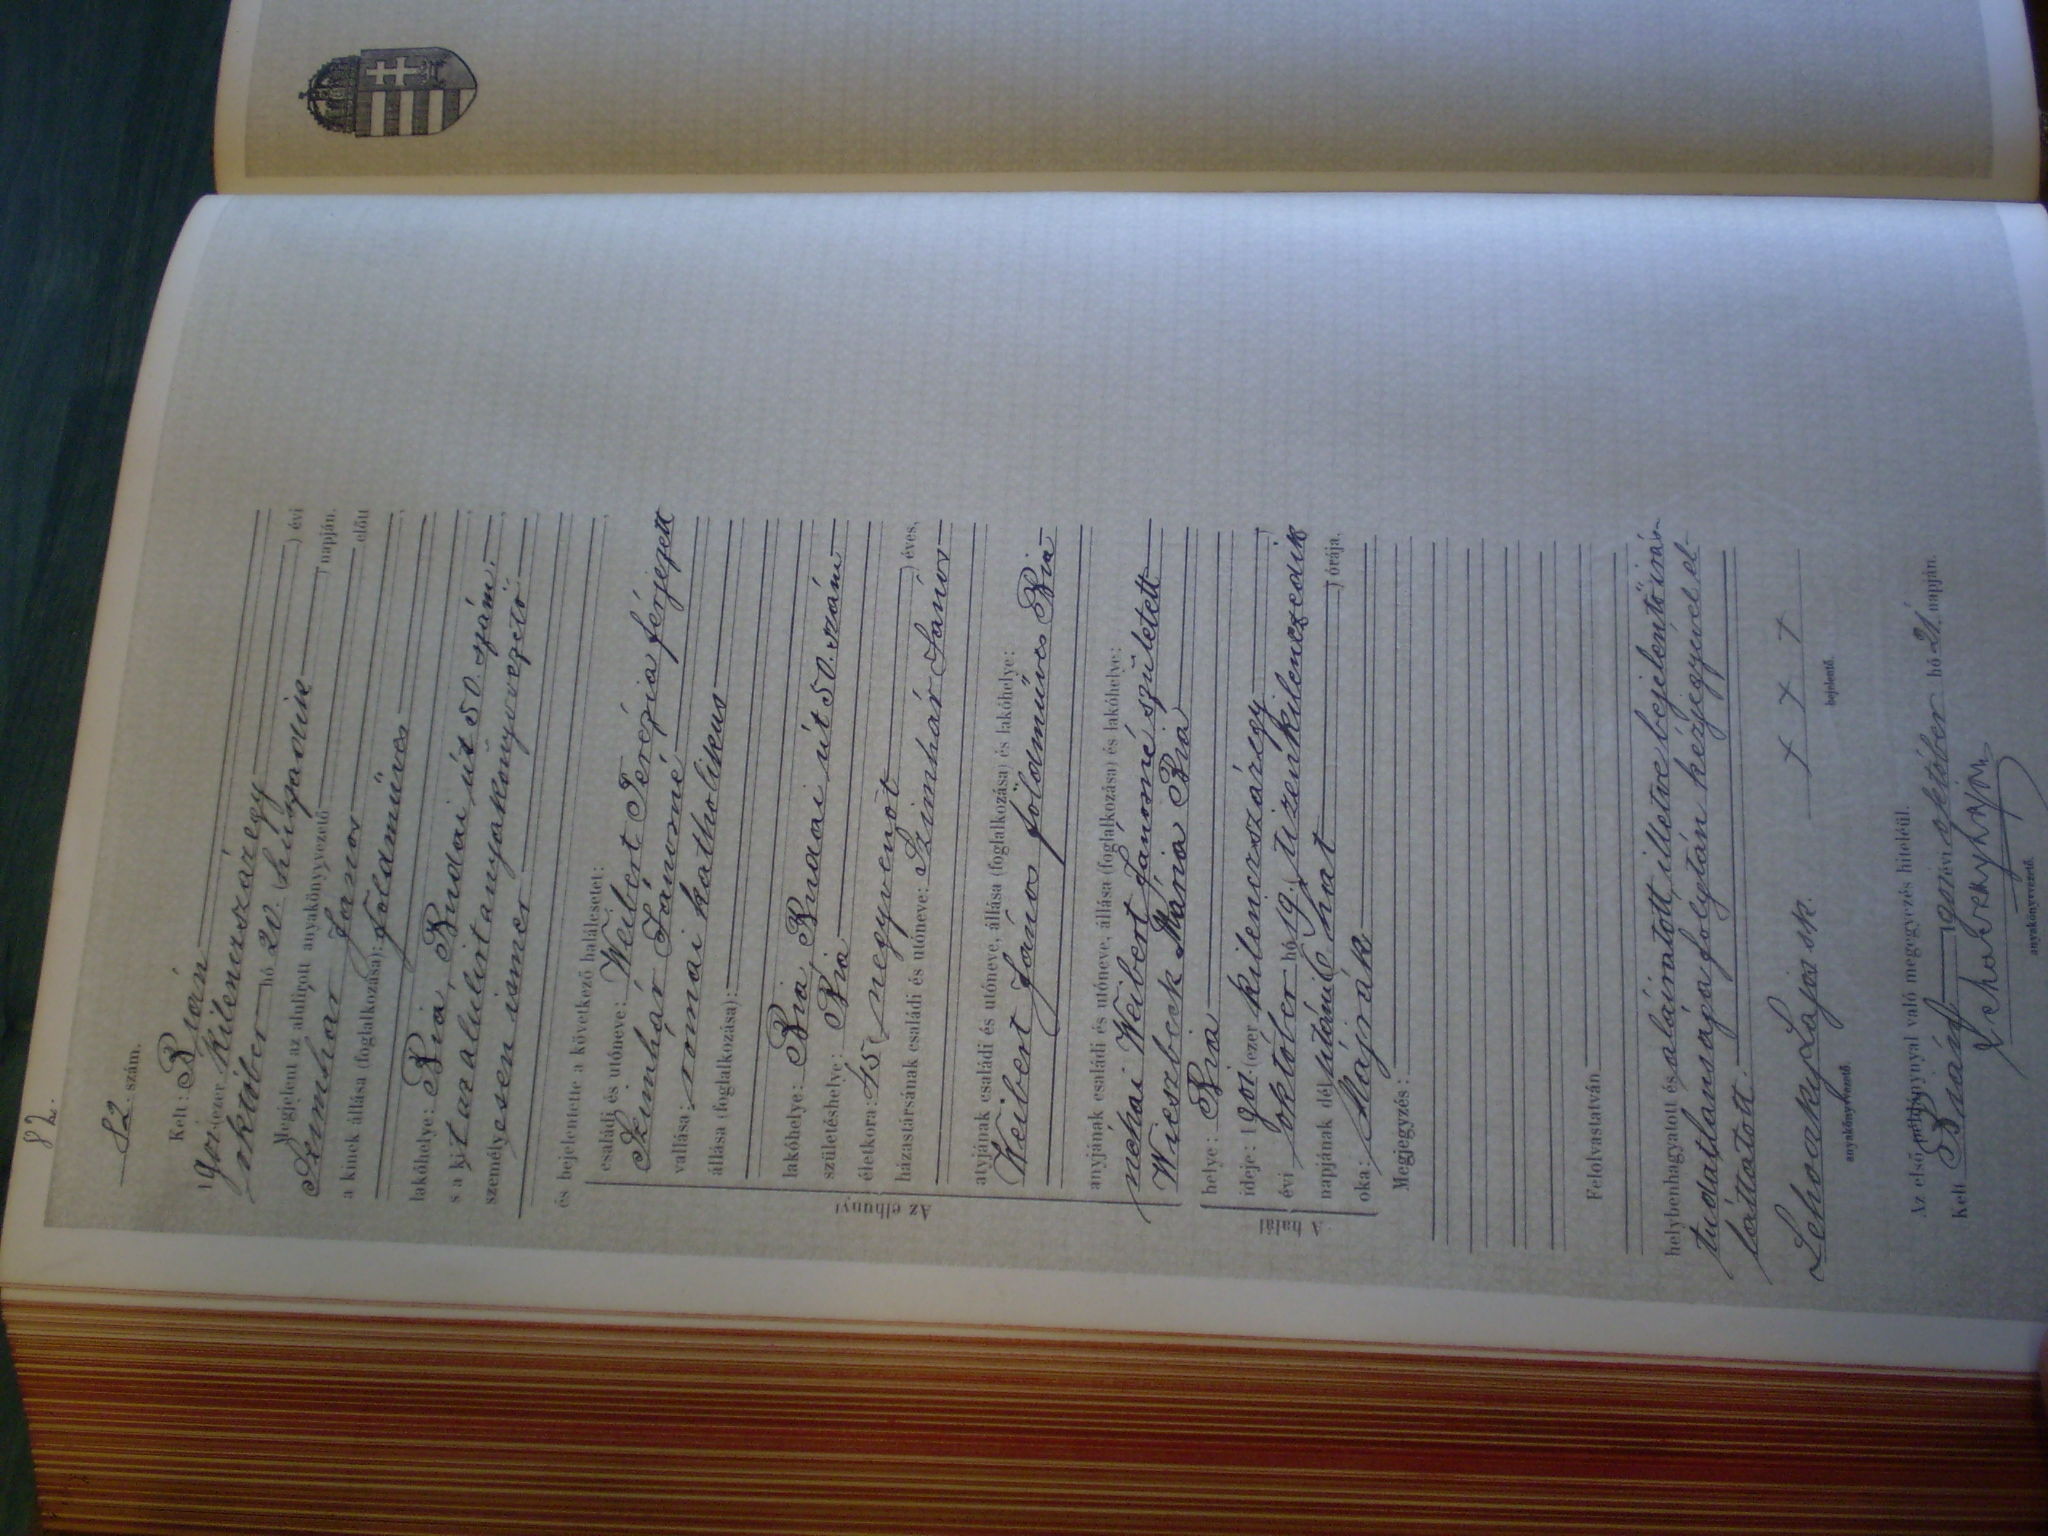 82.
82. szám.
Kelt: Bián
1901. (ezer kilenczszázegy ) évi
október hó 20. (huszadik ) napján.
Megjelent az alulírott anyakönyvvezető előtt
Szimhár János
a kinek állása (foglalkozása): földműves
lakóhelye: Bia, Budai út 50. szám.
s a kit az alulirt anyakönyvvezető
személyesen ismer
és bejelentette a következő halálesetet:
Az elhunyt
családi és utóneve: Weibert Terézia férjezett
Szimhár Jánosné
vallása: római katholikus
állása (foglalkozása):
lakóhelye: Bia, Budai út 50. szám
születéshelye: Bia
életkora: 45 (negyvenöt ) éves,
házastársának családi és utóneve: Szimhár János
atyjának családi és utóneve, állása (foglalkozása) és lakóhelye:
Weibert János földműves Bia
anyjának családi és utóneve, állása (foglalkozása) és lakóhelye:
néhai Weibert Jánosné született
Wieszbeck Mária Bia
A halál
helye: Bia
ideje: 1901. (ezer kilenczszázegy )
évi október hó 19. tizenkilenczedik
napjának dél utáni 6 (hat ) órája.
oka: Májrák
Megjegyzés:
Felolvastatván
helybenhagyatott és aláíratott, illetve bejelentő irás-
tudatlansága folytán kézjegyével el-
láttatott.
Lehoczky Lajos sk. + + +
anyakönyvvezető. bejelentő.
Az első példánynyal való megegyezés hiteléül.
Kelt Bián 1901 évi október hó 21 napján.
anyakönyvvezető.